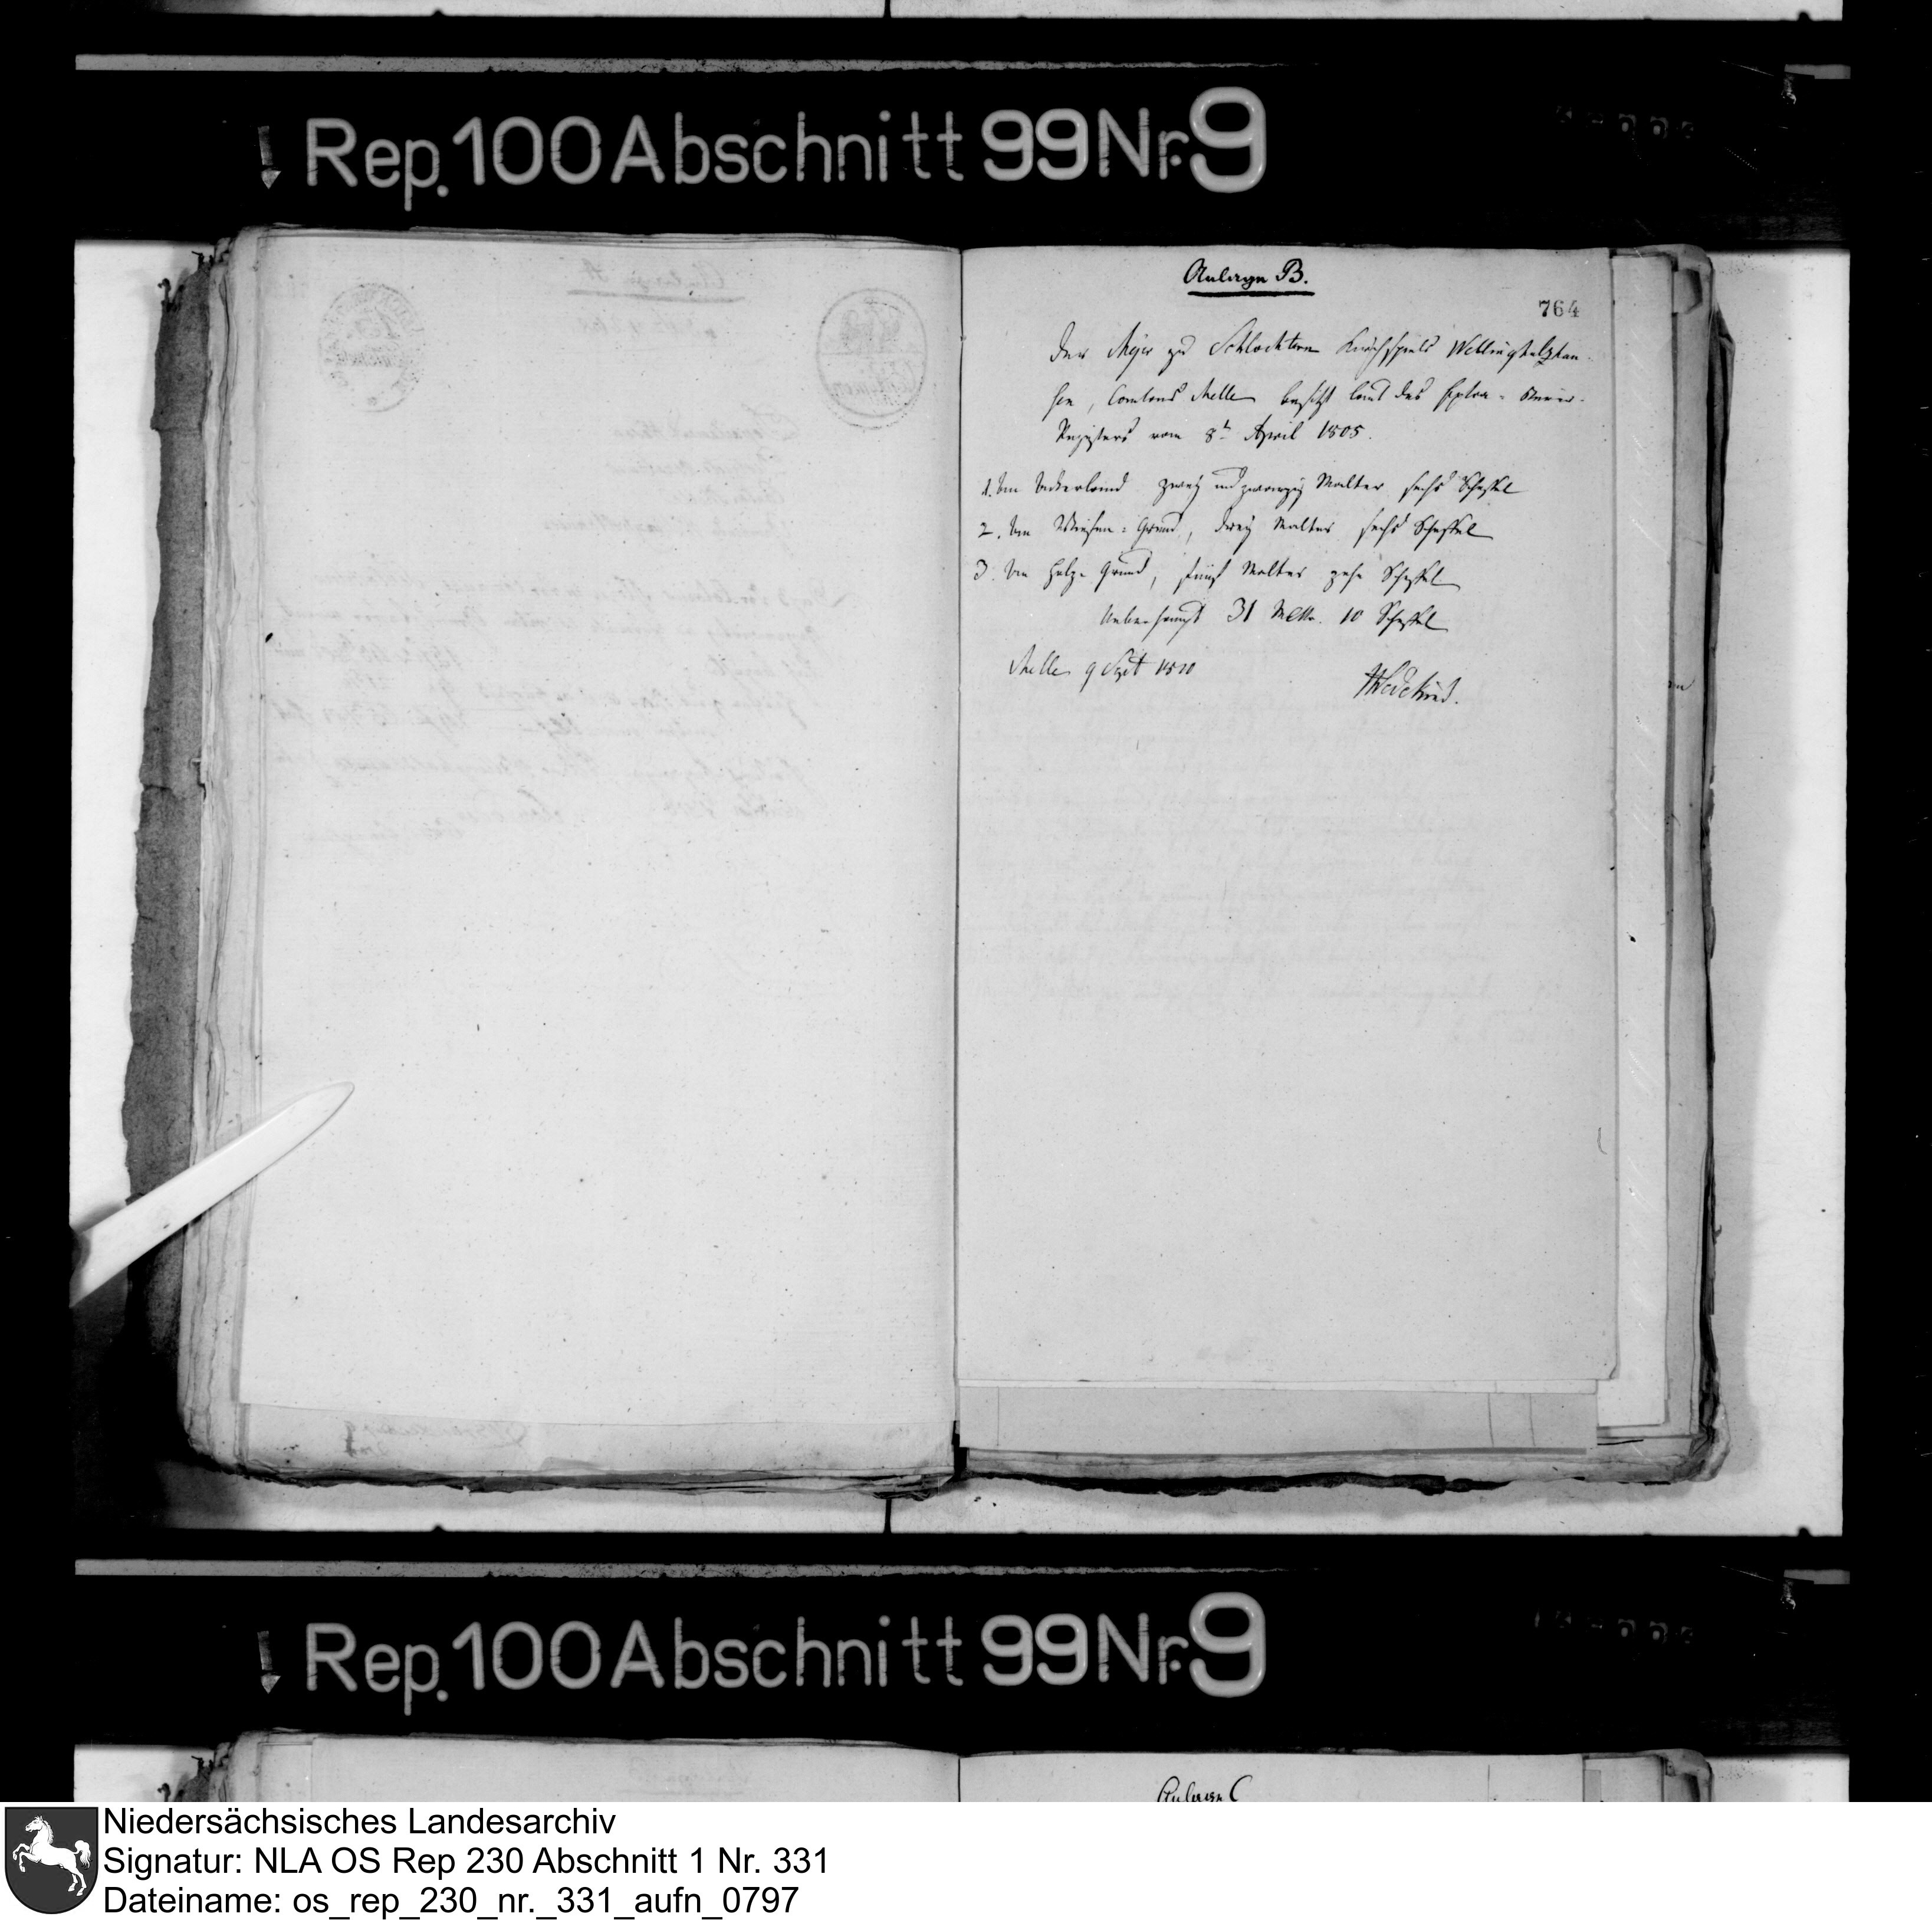 Rep. 100 Abschnitt 99 Nr. 9
Anlage B.
764
Der Mejer zu Schlochtern Kirchspiels Wellingholzhau-
sen, Cantons Melle besitzt laut des Extra-Steuer-
Registers vom 8t April 1805.
1. An Ackerland zwey und zwanzig Malter sechs Scheffel
2. An Wiesen-Grund, drey Malter sechs Scheffel
3. An Holz-Grund, fünf Malter zehn Scheffel
Ueberhaupt 31 Mltr. 10 Scheffel
Melle 9 Sept 1810
Wedekind.
Rep. 100 Abschnitt 99 Nr. 9
Anlage C
Niedersächsisches Landesarchiv
Signatur: NLA OS Rep 230 Abschnitt 1 Nr. 331
Dateiname: os_rep_230_nr._331_aufn_0797